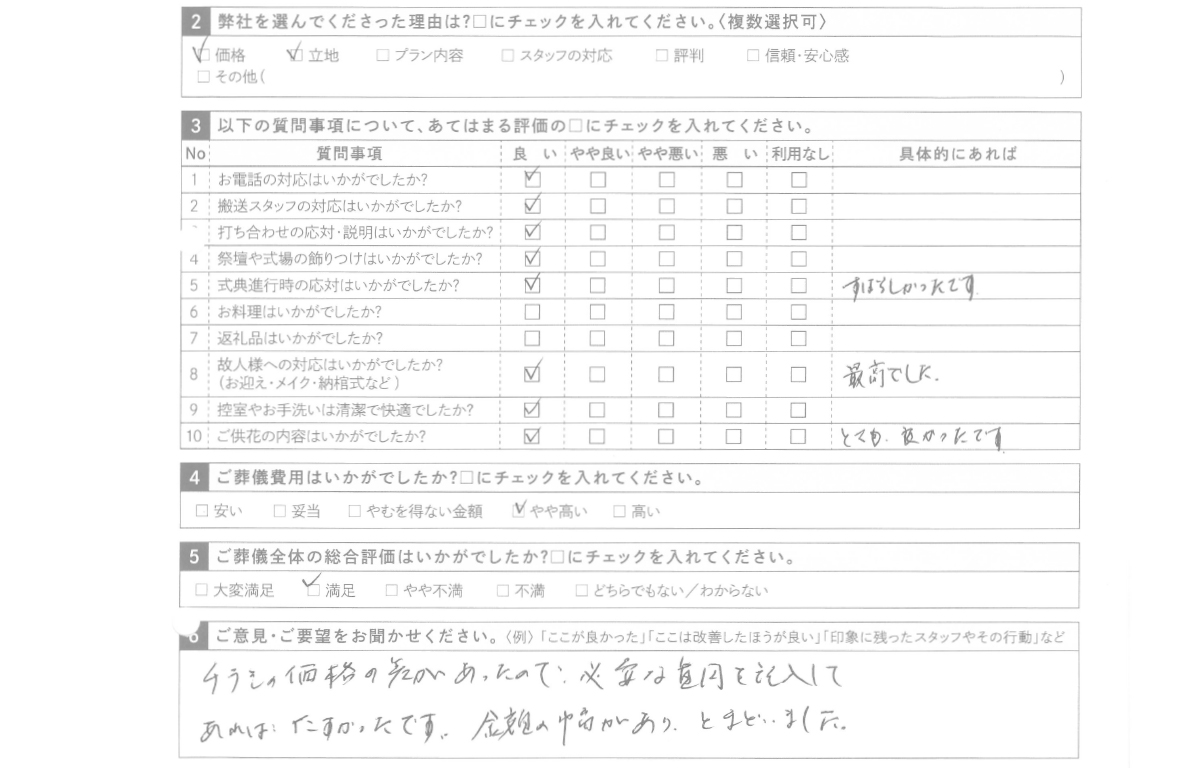 2 弊社を選んでくださった理由は?□にチェックを入れてください。〈複数選択可〉
☑価格 ☑立地 □プラン内容 □スタッフの対応 □評判 □信頼・安心感
□その他( )
3 以下の質問事項について、あてはまる評価の□にチェックを入れてください。
No 質問事項 良い やや良い やや悪い 悪い 利用なし 具体的にあれば
1 お電話の対応はいかがでしたか? ☑ □ □ □ □
2 搬送スタッフの対応はいかがでしたか? ☑ □ □ □ □
打ち合わせの応対・説明はいかがでしたか? ☑ □ □ □ □
4 祭壇や式場の飾りつけはいかがでしたか? ☑ □ □ □ □
5 式典進行時の応対はいかがでしたか? ☑ □ □ □ □ すばらしかったです
6 お料理はいかがでしたか? □ □ □ □ □
7 返礼品はいかがでしたか? □ □ □ □ □
8 故人様への対応はいかがでしたか? ☑ □ □ □ □ 最高でした.
(お迎え・メイク・納棺式など)
9 控室やお手洗いは清潔で快適でしたか? ☑ □ □ □ □
10 ご供花の内容はいかがでしたか? ☑ □ □ □ □ とても、良かったです
4 ご葬儀費用はいかがでしたか?□にチェックを入れてください。
□安い □妥当 □やむを得ない金額 ☑やや高い □高い
5 ご葬儀全体の総合評価はいかがでしたか?□にチェックを入れてください。
□大変満足 ☑満足 □やや不満 □不満 □どちらでもない/わからない
6 ご意見・ご要望をお聞かせください。〈例〉「ここが良かった」「ここは改善したほうが良い」「印象に残ったスタッフやその行動」など
チラシの価格の があったので、必要な を記入して
あれば、たすかったです。金額の幅があり、とまどいました。